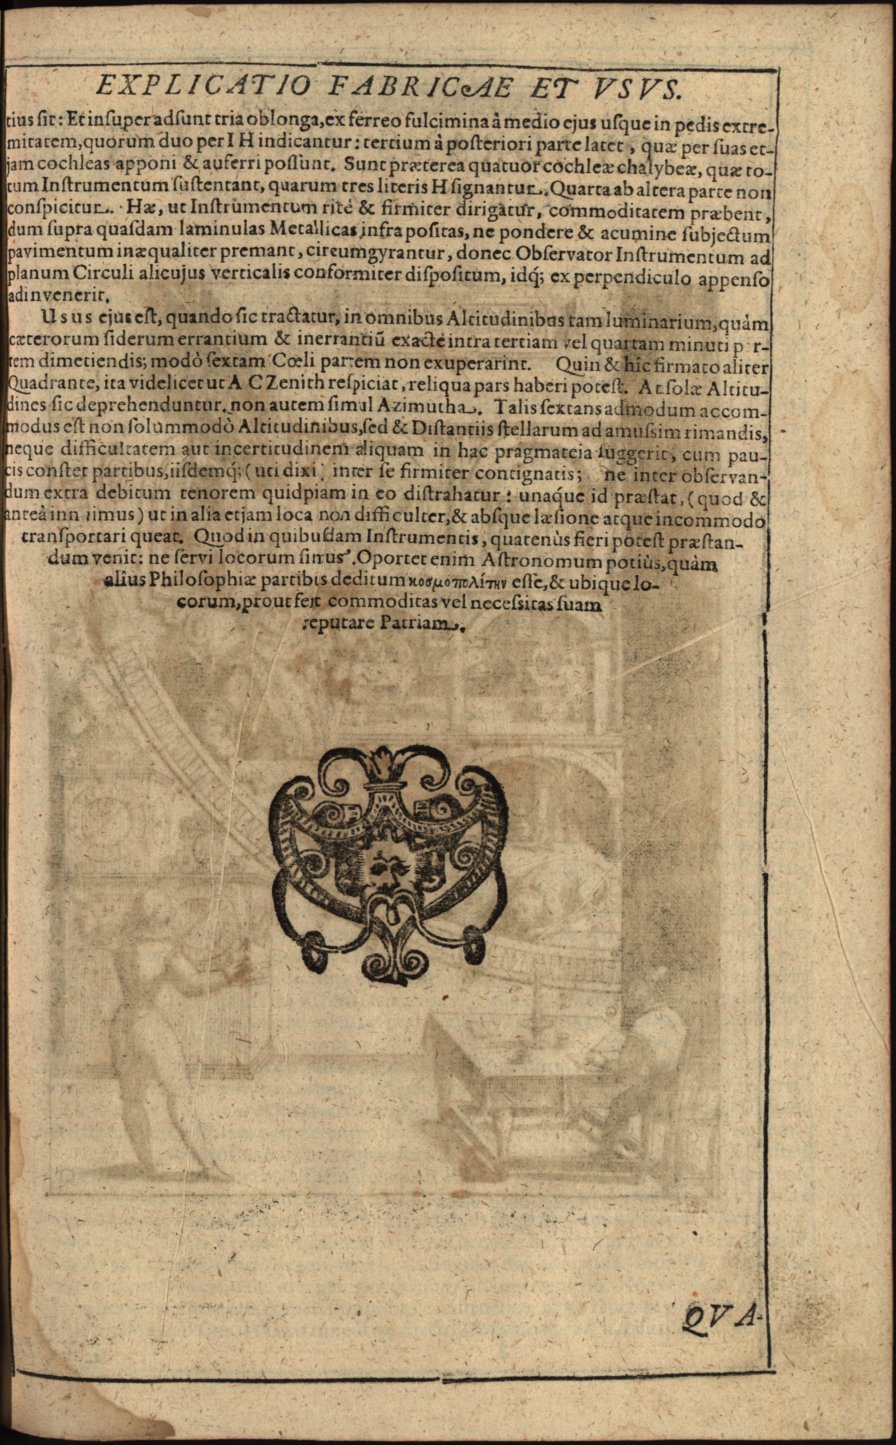 EXPLICATIO FABRICAE ET VSVS.
tius sit: Et insuper adsunt tria oblonga, ex ferreo fulcimina â medio ejus usque in pedis extre-
mitatem, quorum duo per I H indicantur: tertium â posteriori parte latet, quæ per suas et-
jam cochleas apponi & auferri possunt. Sunt præterea quatuor cochleæ chalybeæ, quæ to-
tum Instrumentum sustentant, quarum tres literis H signantur. Quarta ab altera parte non
conspicitur. Hæ, ut Instrumentum rité & firmiter dirigatur, commoditatem præbent,
dum supra quasdam laminulas Metallicas infra positas, ne pondere & acumine subjectum
pavimentum inæqualiter premant, circumgyrantur, donec Observator Instrumentum ad
planum Circuli alicujus verticalis conformiter dispositum, idq; ex perpendiculo appenso
adinvenerit.
Usus ejus est, quando sic tractatur, in omnibus Altitudinibus tam luminarium, quàm
cæterorum siderum errantium & inerrantiũ exacté intra tertiam vel quartam minuti par-
tem dimetiendis; modò sextam Cœli partem non exuperarint. Quin & hîc firmato aliter
Quadrante, ita videlicet ut A C Zenith respiciat, reliqua pars haberi potest. At solæ Altitu-
dines sic deprehenduntur, non autem simul Azimutha. Talis sextans admodum accom-
modus est non solummodò Altitudinibus, sed & Distantiis stellarum ad amussim rimandis,
neque difficultatem aut incertitudinem aliquam in hac pragmateia suggerit, cum pau-
cis constet partibus, iisdemq; (uti dixi) inter se firmiter contignatis; ne inter observan-
dum extra debitum tenorem quidpiam in eo distrahatur: unaque id præstat, (quod &
anteâ innuimus) ut in alia etjam loca non difficulter, & absque læsione atque incommodo
transportari queat. Quod in quibusdam Instrumentis, quatenùs fieri potest præstan-
dum venit: ne servi locorum simus. Oportet enim Astronomum potiùs, quàm
alius Philosophiæ partibus deditum κοσμοπολίτην esse, & ubique lo-
corum, prout fert commoditas vel necessitas suam
reputare Patriam.
QVA-